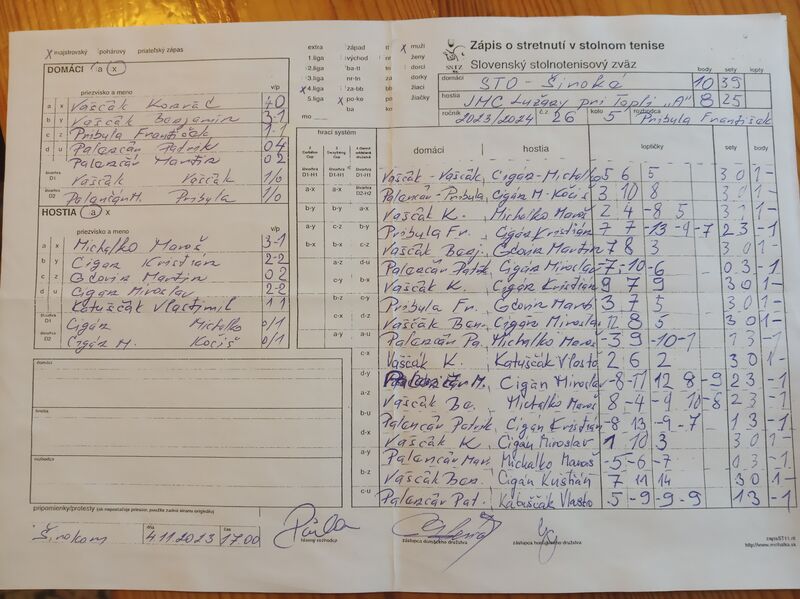 X majstrovský pohárový priateľský zápas
DOMÁCI a x
priezvisko a meno v/p
a x Vaščák Konráč 4 0
b y Vaščák Benjamín 3-1
c z Pribula František 1-1
d u Palenčár Patrik 0 4
Palenčár Martin 0 2
štvorhra D1 Vaščák Vaščák 1/0
štvorhra D2 Palenčár M. Pribula 1/0
HOSTIA a x
priezvisko a meno v/p
a x Michalko Maroš 3-1
b y Cigán Kristián 2-2
c z Gdovin Martin 0 2
d u Cigán Miroslav 2-2
Katuščák Vlastimil 1 1
štvorhra D1 Cigán Michalko 0/1
štvorhra D2 Cigán M. Kočiš 0/1
domáci
hostia
rozhodca
pripomienky/protesty (ak nepostačuje priestor, použite zadnú stranu originálu)
Širokom dňa 4.11.2023 čas 17.00
hlavný rozhodca
zástupca domáceho družstva
zástupca hosťujúceho družstva
extra západ X muži
1.liga východ ženy
2.liga ba-tt dorci
3.liga nr-tn dorky
X 4.liga za-bb žiaci
5.liga X po-ke žiačky
SSTZ
Zápis o stretnutí v stolnom tenise
Slovenský stolnotenisový zväz
domáci STO - Široké body 10 sety 39 lopty
hostia JMC Lužany pri Topli "A" 8 25
ročník 2023/2024 č.z. 26 kolo 5 rozhodca Pribula František
hrací systém
domáci hostia loptičky sety body
Vaščák - Vaščák Cigán - Michalko 5 6 5 3 0 1 -
Palenčár - Pribula Cigán M - Kočiš 3 10 8 3 0 1 -
Vaščák K. Michalko Maroš 2 4 -8 5 3 1 1 -
Pribula Fr. Cigán Kristián 7 7 -13 -9 -7 2 3 - 1
Vaščák Benj. Gdovin Martin 7 8 3 3 0 1 -
Palenčár Patrik Cigán Miroslav -7 -10 -6 0 3 - 1
Vaščák K. Cigán Kristián 9 7 9 3 0 1 -
Pribula Fr. Gdovin Martin 3 7 5 3 0 1 -
Vaščák Ben. Cigán Miroslav 12 8 5 3 0 1 -
Palenčár Pa. Michalko Maroš -3 9 -10 -7 1 3 - 1
Vaščák K. Katuščák Vlasto 2 6 2 3 0 1 -
Palenčár M. Cigán Miroslav -8 -11 12 8 -9 2 3 - 1
Vaščák Be. Michalko Maroš 8 -4 -9 10 -8 2 3 - 1
Palenčár Patrik Cigán Kristián -8 13 -9 -7 1 3 - 1
Vaščák K. Cigán Miroslav 1 10 3 3 0 1 -
Palenčár Mar. Michalko Maroš -5 -6 -7 0 3 - 1
Vaščák Ben. Cigán Kristián 7 11 14 3 0 1 -
Palenčár Pat. Katuščák Vlasto 5 -9 -9 -9 1 3 - 1
http://www.mchalka.sk